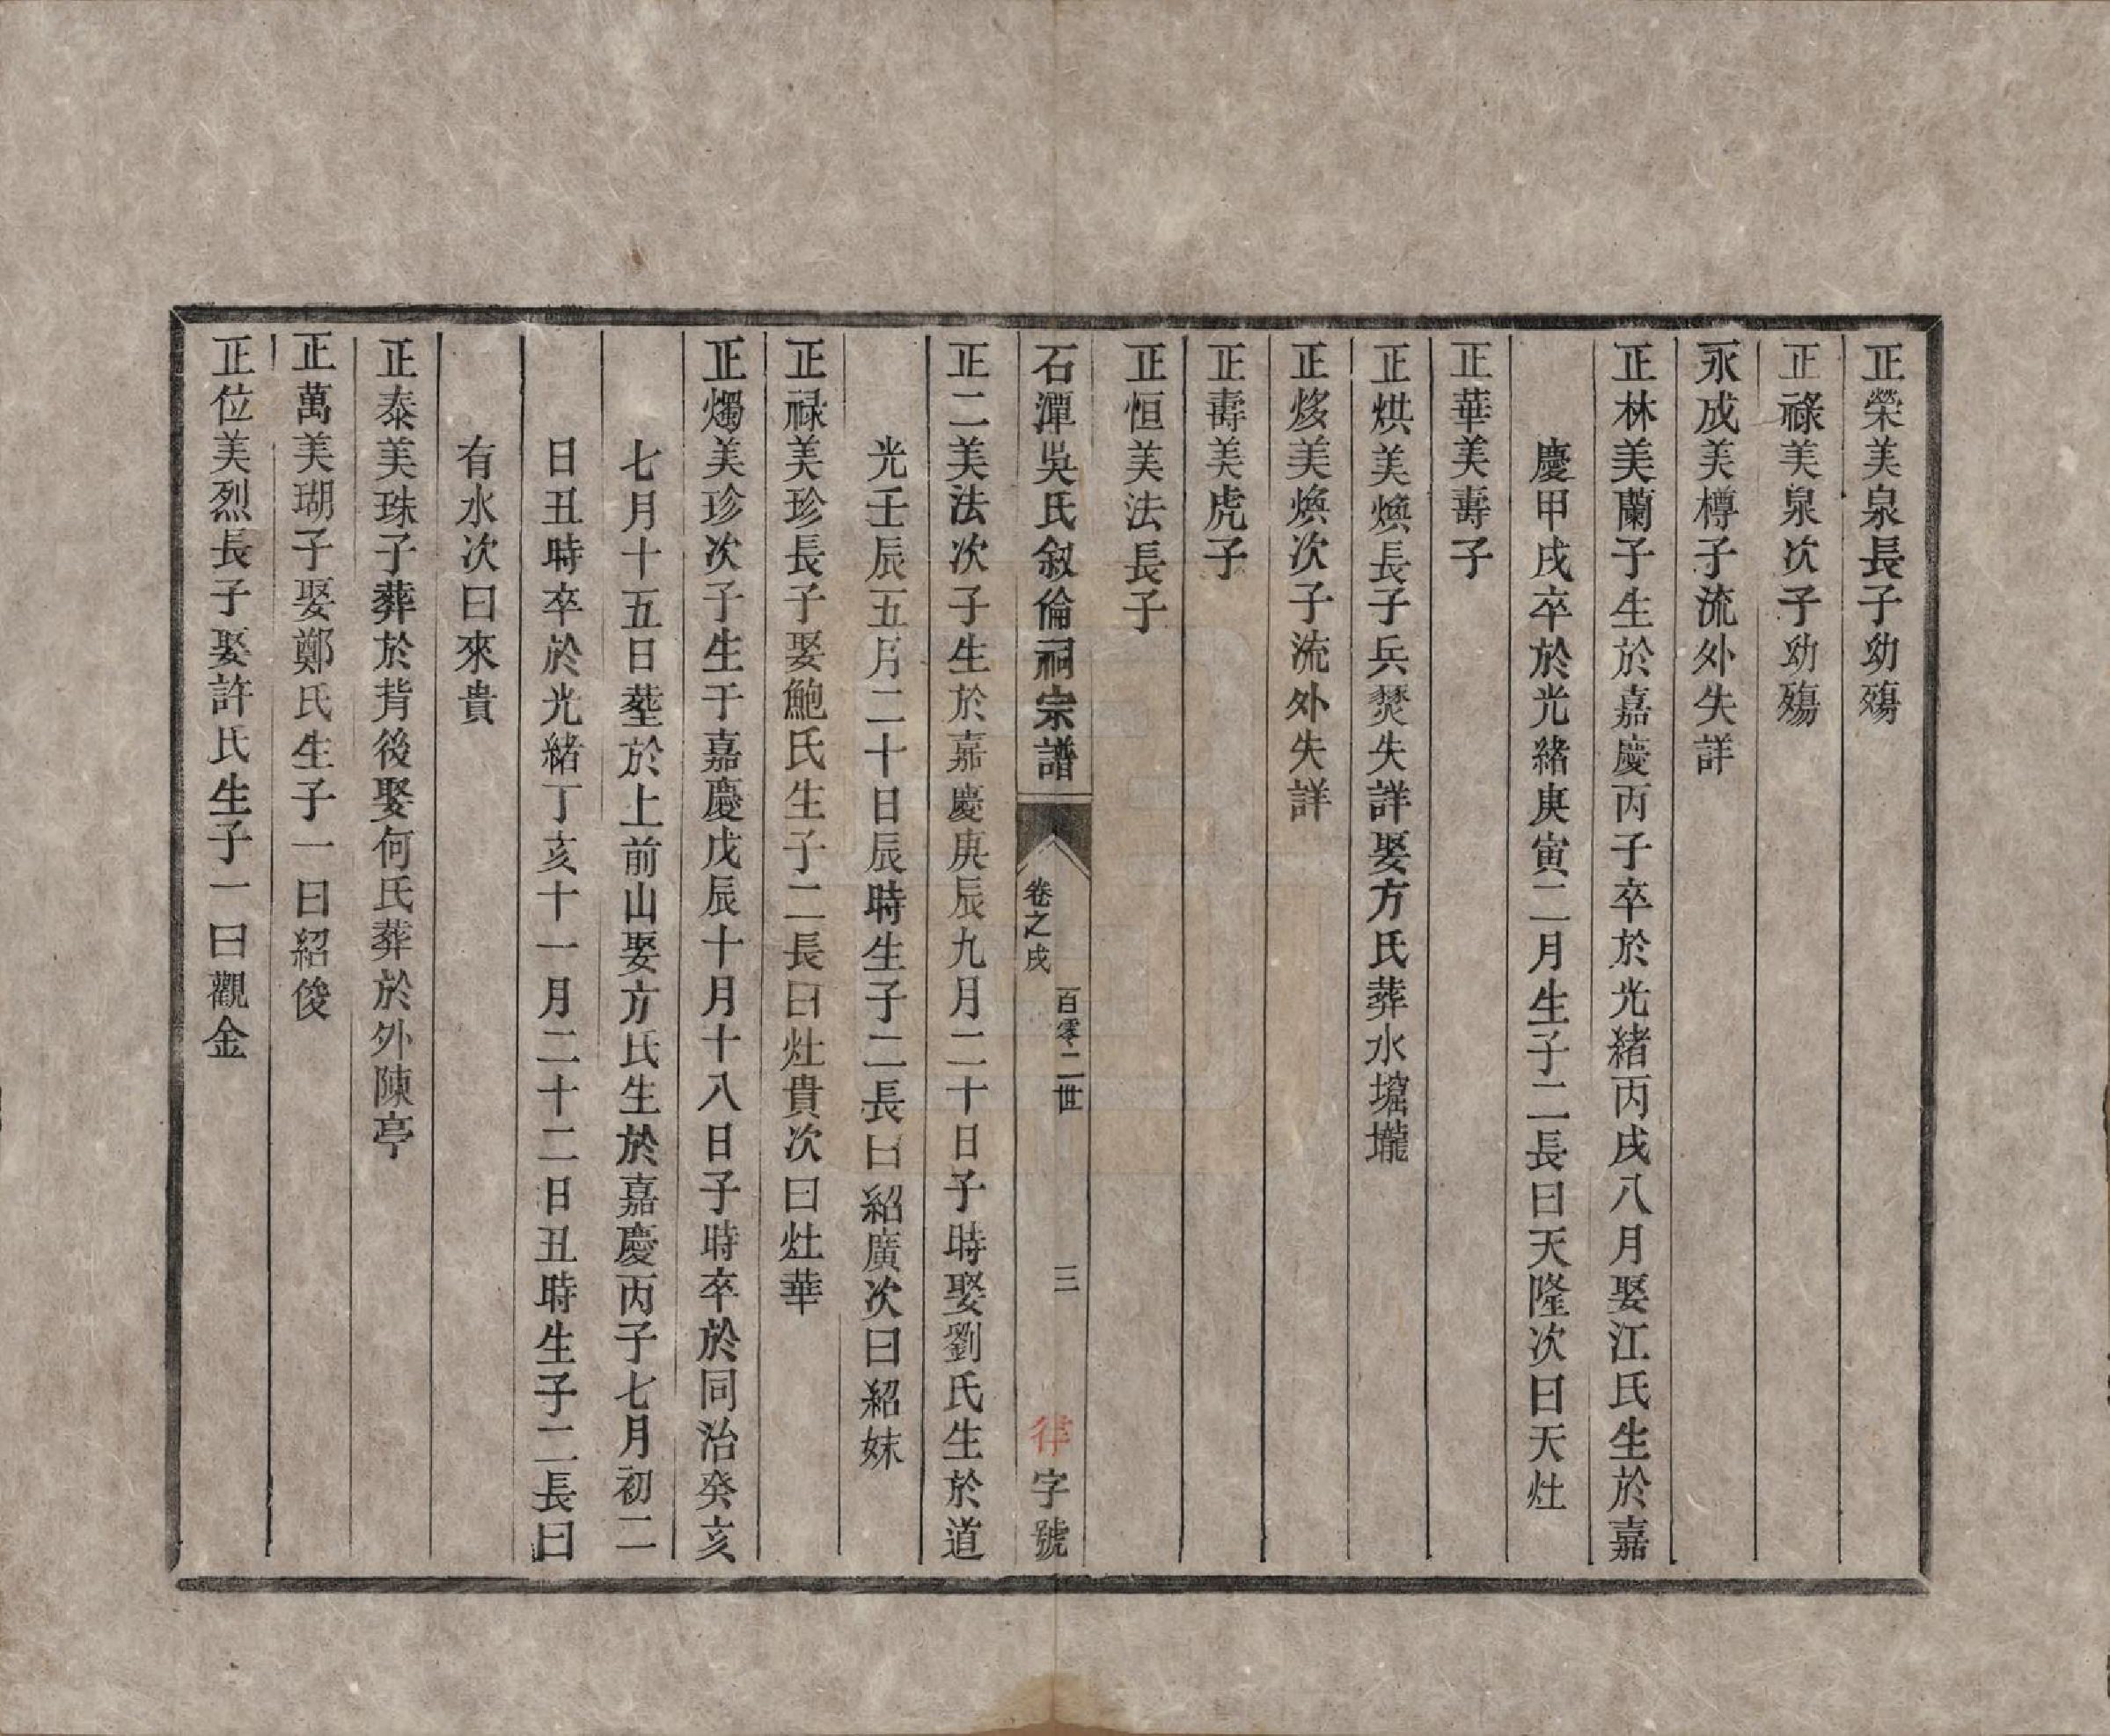 正榮美泉長子幼殤
正祿美泉次子幼殤
永成美樽子流外失詳
正林美蘭子生於嘉慶丙子卒於光緒丙戌八月娶江氏生於嘉
慶甲戌卒於光緒庚寅二月生子二長曰天隆次曰天灶
正華美壽子
正烘美煥長子兵燹失詳娶方氏葬水堀壠
正㶴美煥次子流外失詳
正壽美虎子
正恒美法長子
石潭吳氏敘倫祠宗譜
卷之戌
百零二世
三
字號
正二美法次子生於嘉慶庚辰九月二十日子時娶劉氏生於道
光壬辰五月二十日辰時生子二長曰紹廣次曰紹妹
正祿美珍長子娶鮑氏生子二長曰灶貴次曰灶華
正燭美珍次子生于嘉慶戊辰十月十八日子時卒於同治癸亥
七月十五日塟於上前山娶方氏生於嘉慶丙子七月初二
日丑時卒於光緒丁亥十一月二十二日丑時生子二長曰
有水次曰來貴
正泰美珠子葬於背後娶何氏葬於外陳亭
正萬美瑚子娶鄭氏生子一曰紹俊
正位美烈長子娶許氏生子一曰觀金